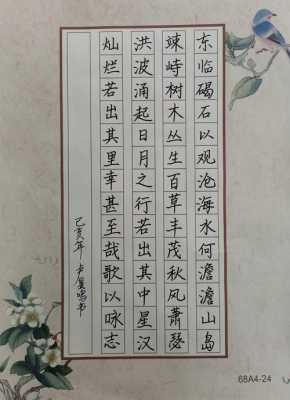 东临碣石以观沧海水何澹澹山岛
竦峙树木丛生百草丰茂秋风萧瑟
洪波涌起日月之行若出其中星汉
灿烂若出其里幸甚至哉歌以咏志
己亥年 书
68A4-24